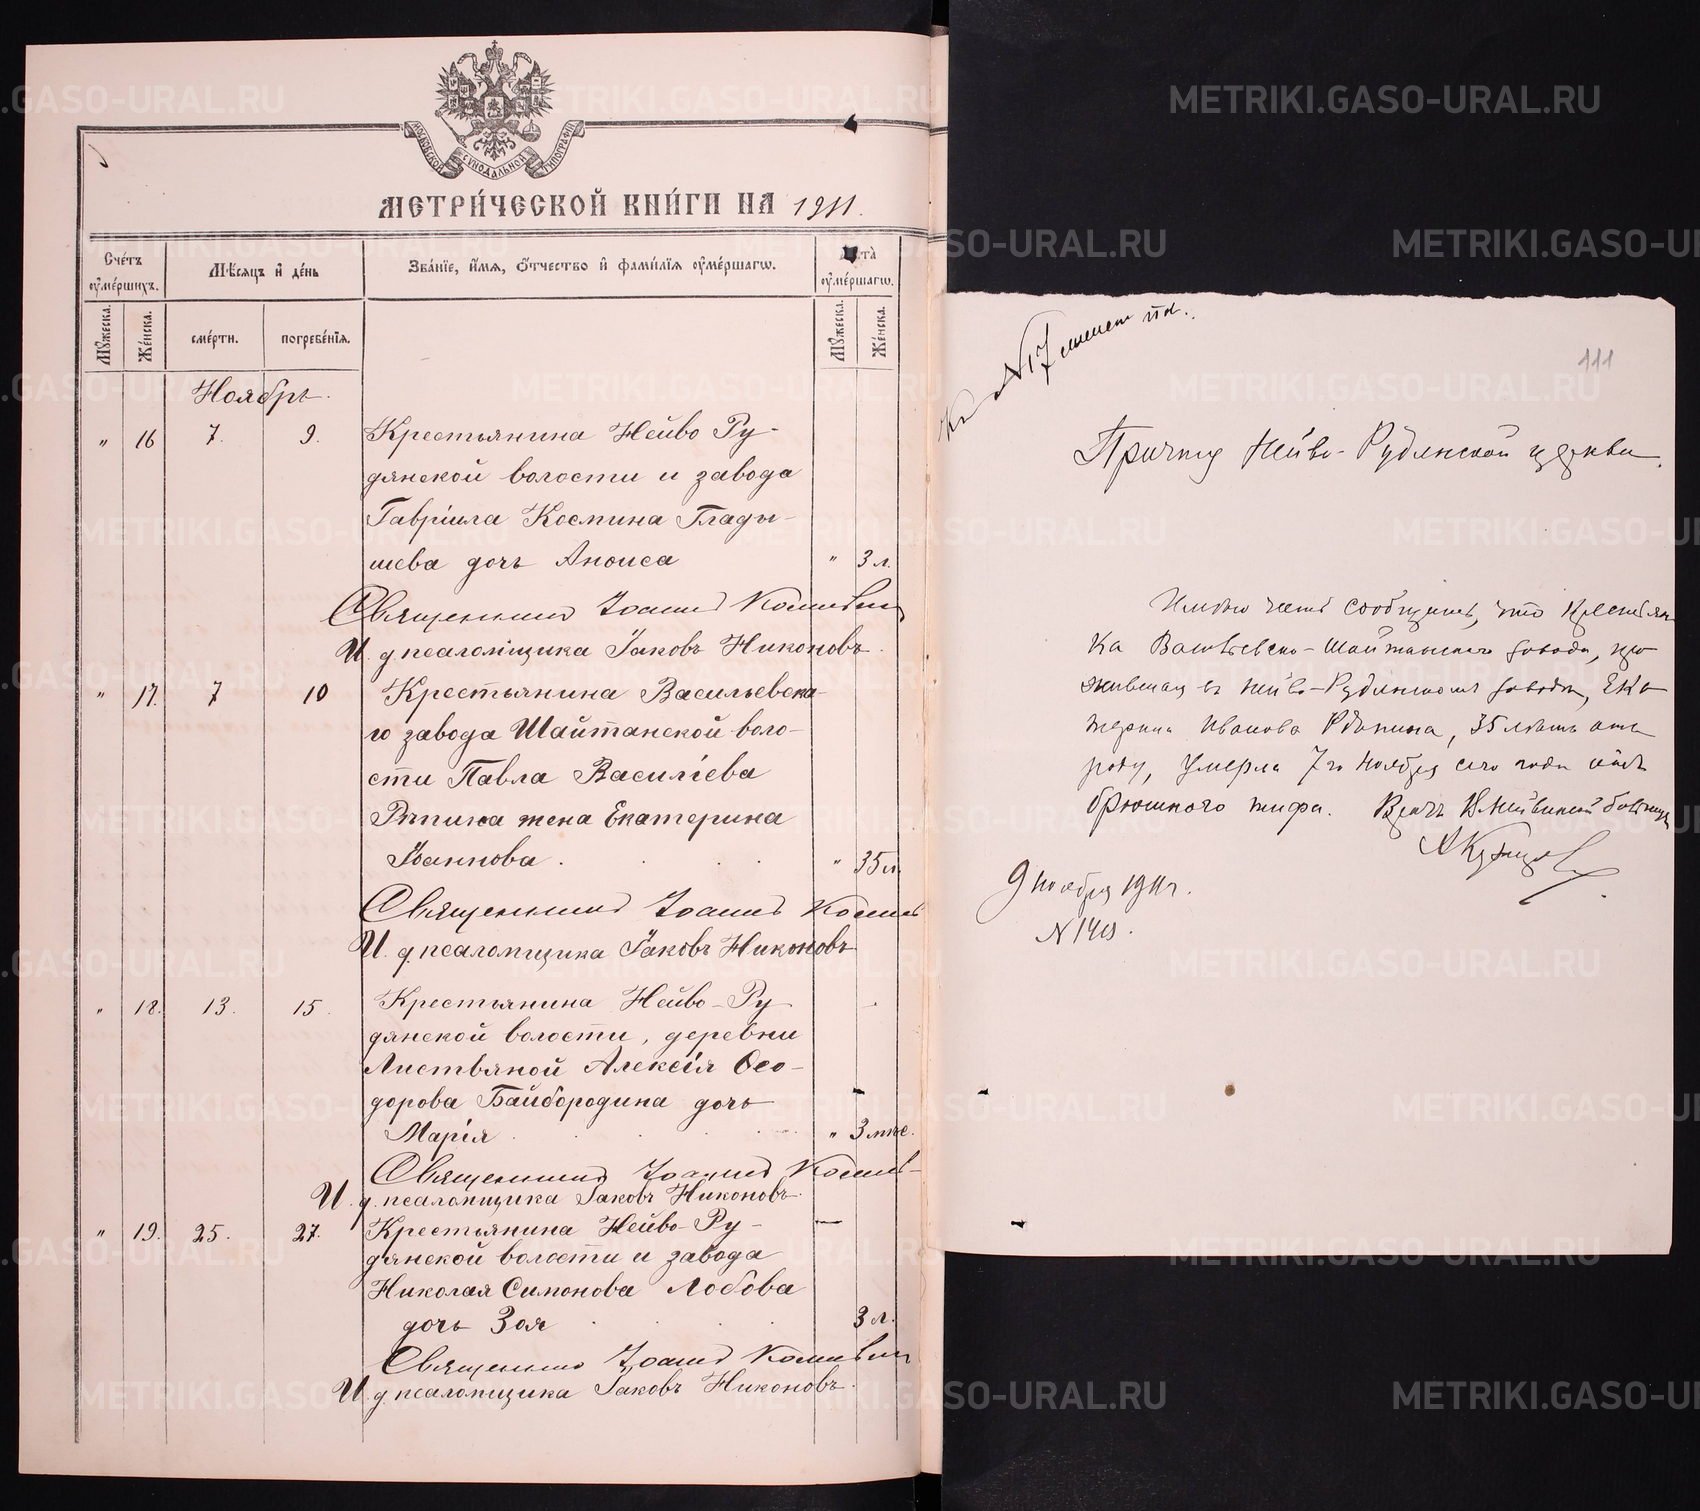 МОСКОВСКОЙ СУНОДАЛЬНОЙ ТИПОГРАФІИ
МЕТРИ́ЧЕСКОЙ КНИ́ГИ НА 1911.
Сче́тъ ᲂу҆ме́ршихъ.
Мѣ́сяцъ и҆ де́нь
Зва́нїе, и҆́мѧ, ѻ҆́тчество и҆ фами́лїѧ ᲂу҆ме́ршагѡ.
Лѣ́та ᲂу҆ме́ршагѡ.
Мꙋ́жеска.
Же́нска.
сме́рти.
погребе́нїѧ.
Мꙋ́жеска.
Же́нска.
Ноябрь.
" 16 7. 9. Крестьянина Нейво Ру-
дянской волости и завода
Гавріила Космина Глады-
шева дочь Аноиса " 3 л.
Священникъ Іоаннъ
И. д. псаломщика Іаковъ Никоновъ.
" 17. 7 10 Крестьянина Васильевска-
го завода Шайтанской воло-
сти Павла Василіева
Рѣпина жена Екатерина
Іоаннова . " 35 л.
Священникъ Іоаннъ
И. д. псаломщика Іаковъ Никоновъ
" 18. 13. 15. Крестьянина Нейво-Ру-
дянской волости, деревни
Листвяной Алексія Ѳео-
дорова Байбородина дочь
Марія " 3 мѣс.
Священникъ Іоаннъ
И. д. псаломщика Іаковъ Никоновъ.
" 19. 25. 27. Крестьянина Нейво-Ру-
дянской волости и завода
Николая Симонова Лобова
дочь Зоя 3 л.
Священникъ Іоаннъ
И. д. псаломщика Іаковъ Никоновъ.
Къ №17
111
Причту Нейво-Рудянской церкви.
Имѣю честь сообщить, что крестьян
ка Васильевско-Шайтанского завода, про
живавшая въ Нейво-Рудянскомъ заводѣ, Ека
терина Иванова Рѣпина, 35 лѣтъ отъ
роду, умерла 7го ноября сего года отъ
брюшного тифа. Врачъ больницы
9 ноября 1911 г.
METRIKI.GASO-URAL.RU